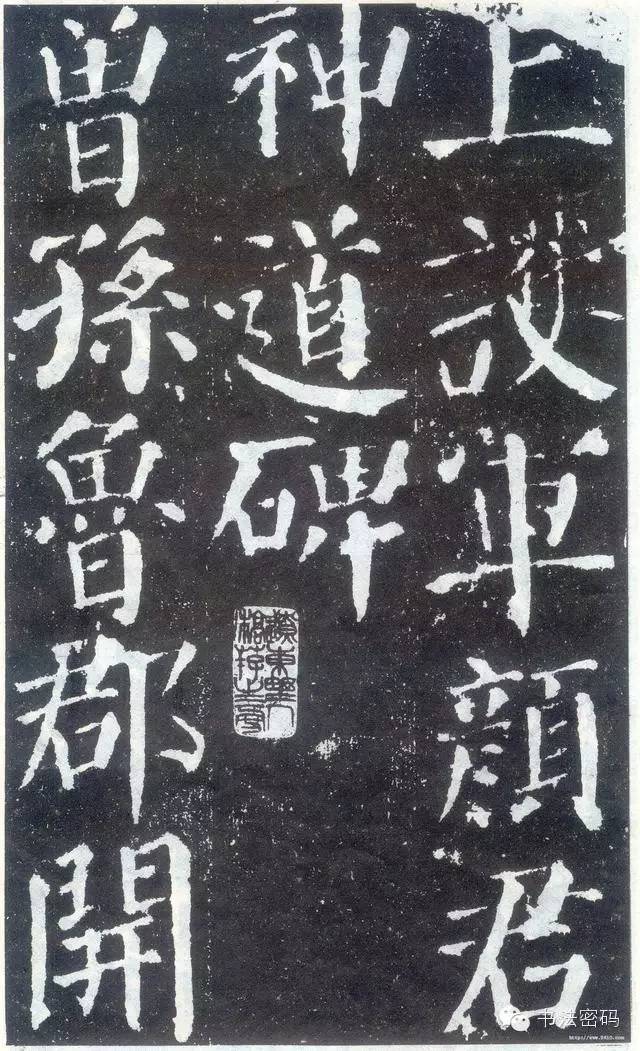 上護軍顏君
神道碑
曾孫魯郡開
书法密码
http://www.9610.com